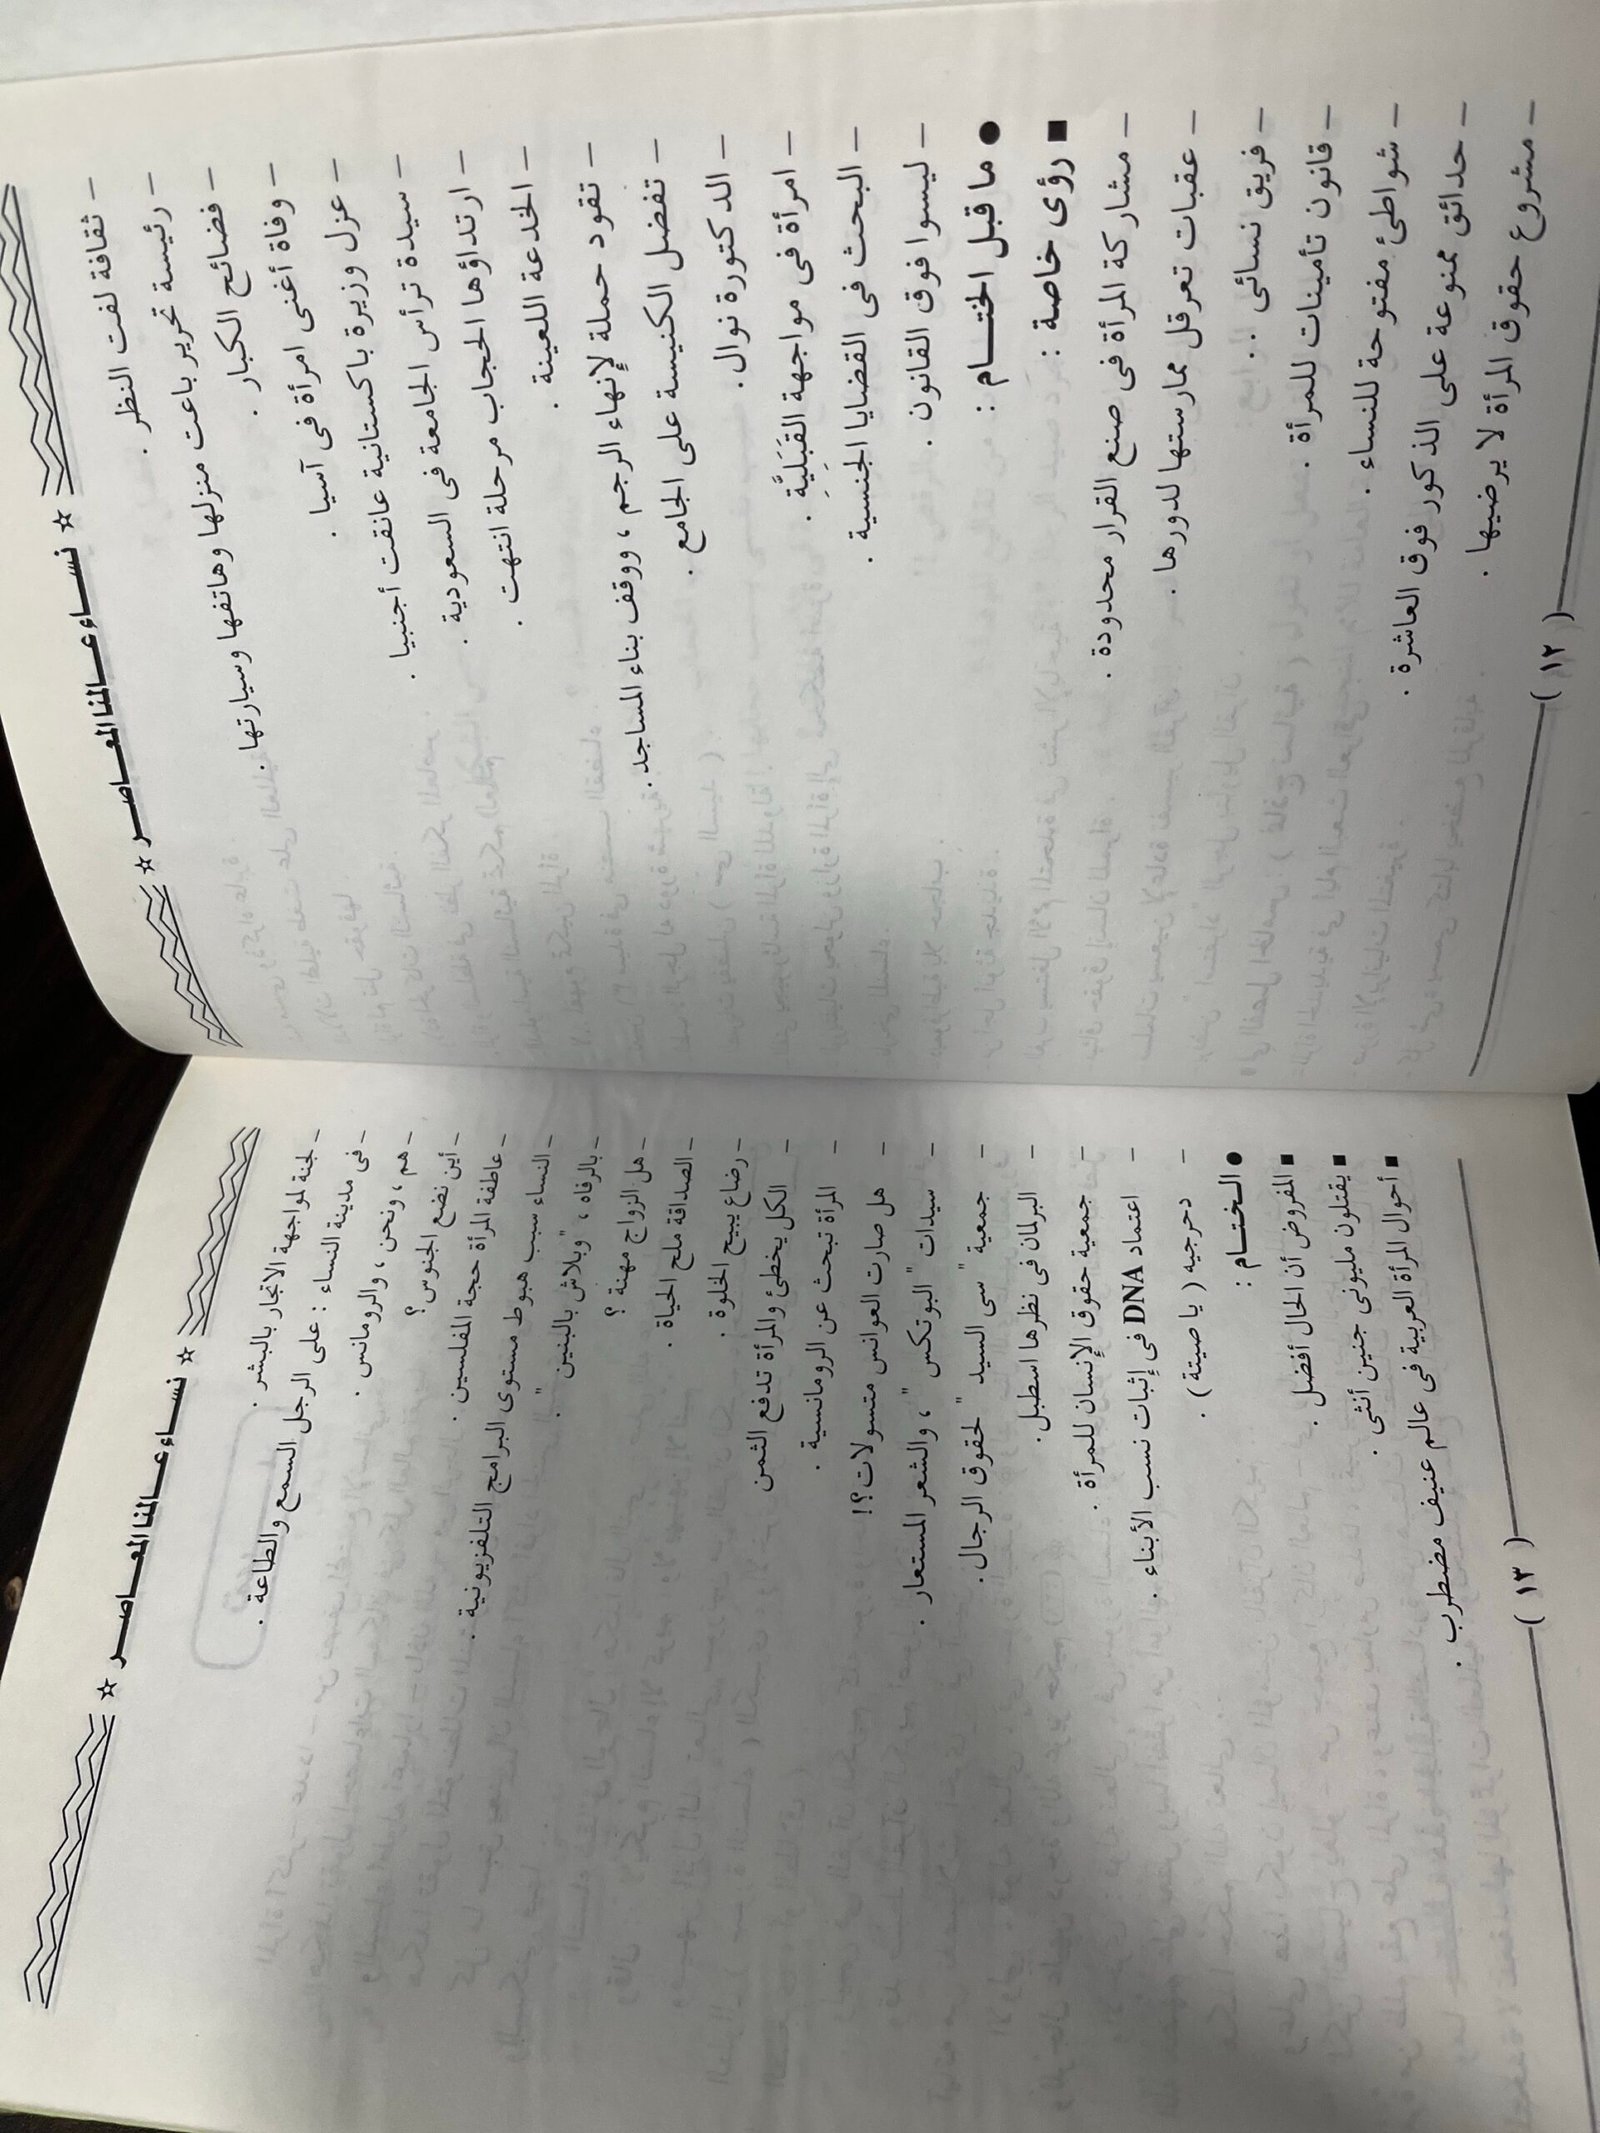 ☆ نســـاء عـــالمنا المعـــاصـــر ☆
– ثقافة لفت النظر .
– رئيسة تحرير باعت منزلها وهاتفها وسيارتها .
– فضائح الكبار .
– وفاة أغنى امرأة فى آسيا .
– عزل وزيرة باكستانية عانقت أجنبيا .
– سيدة ترأس الجامعة فى السعودية .
– ارتداؤها الحجاب مرحلة انتهت .
– الخدعة اللعينة .
– تقود حملة لإنهاء الرجم ، ووقف بناء المساجد .
– تفضل الكنيسة على الجامع .
– الدكتورة نوال .
– امرأة فى مواجهة القَبَليَّةِ .
– البحث فى القضايا الجنسية .
– ليسوا فوق القانون .
● ما قبل الختـــام :
■ رؤى خاصة :
– مشاركة المرأة فى صنع القرار محدودة .
– عقبات تعرقل ممارستها لدورها .
– فريق نسائى . .
– قانون تأمينات للمرأة .
– شواطئ مفتوحة للنساء .
– حدائق ممنوعة على الذكور فوق العاشرة .
– مشروع حقوق المرأة لا يرضيها .
( ١٢ )
☆ نســـاء عـــالمنا المعـــاصـــر ☆
– لجنة لمواجهة الاتجار بالبشر .
– فى مدينة النساء : على الرجل السمع والطاعة .
– هم ، ونحن ، والرومانس .
– أين نضع الجنوس ؟
– عاطفة المرأة حجة المفلسين .
– النساء سبب هبوط مستوى البرامج التلفزيونية .
– بالرفاه ، "وبلاش بالبنين" .
– هل الزواج مهنة ؟
– الصداقة ملح الحياة .
– رضاع يبيح الخلوة .
– الكل يخطئ والمرأة تدفع الثمن
– المرأة تبحث عن الرومانسية .
– هل صارت العوانس متسولات؟!
– سيدات "البوتكس" ، والشعر المستعار .
– جمعية "سى السيد" لحقوق الرجال .
– البرلمان فى نظرها اسطبل .
– جمعية حقوق الإنسان للمرأة .
– اعتماد DNA فى إثبات نسب الأبناء .
– دحرجيه ( يا صيتة ) .
● الختـــام :
■ المفروض أن الحال أفضل .
■ يقتلون مليونى جنين أنثى .
■ أحوال المرأة العربية فى عالم عنيف مضطرب .
( ١٣ )